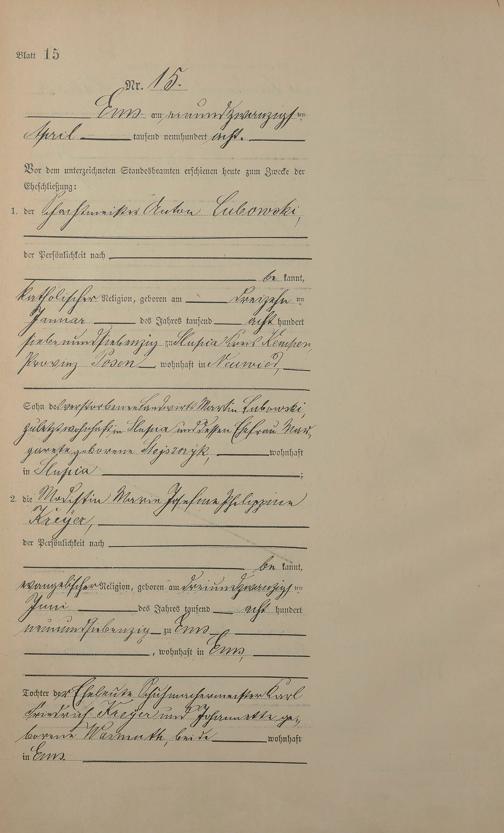 Blatt 15
Nr. 15.
Ems am neunundzwanzigsten
April tausend neunhundert acht.
Vor dem unterzeichneten Standesbeamten erschienen heute zum Zwecke der
Eheschließung:
1. der Schachtmeister Anton Lubowski,
der Persönlichkeit nach
be kannt,
katholischer Religion, geboren am dreizehnten
Januar des Jahres tausend acht hundert
siebenundsiebenzig zu Slupia Kreis Kempen,
Provinz Posen, wohnhaft in Neuwied,
Sohn des verstorbenen Landwirts Martin Lubowski,
zuletzt wohnhaft in Slupia und dessen Ehefrau Mar,
garete geborene wohnhaft
in Slupia ;
2. die Modistin Marie Josefine Philippine
Kreyer,
der Persönlichkeit nach
be kannt,
evangelischer Religion, geboren am dreiundzwanzigsten
Juni des Jahres tausend acht hundert
neunundsiebenzig zu Ems
, wohnhaft in Ems,
Tochter der Eheleute Schuhmachermeister Karl
Friedrich Kreyer und Johannette ge,
borene Warmuth, beide wohnhaft
in Ems